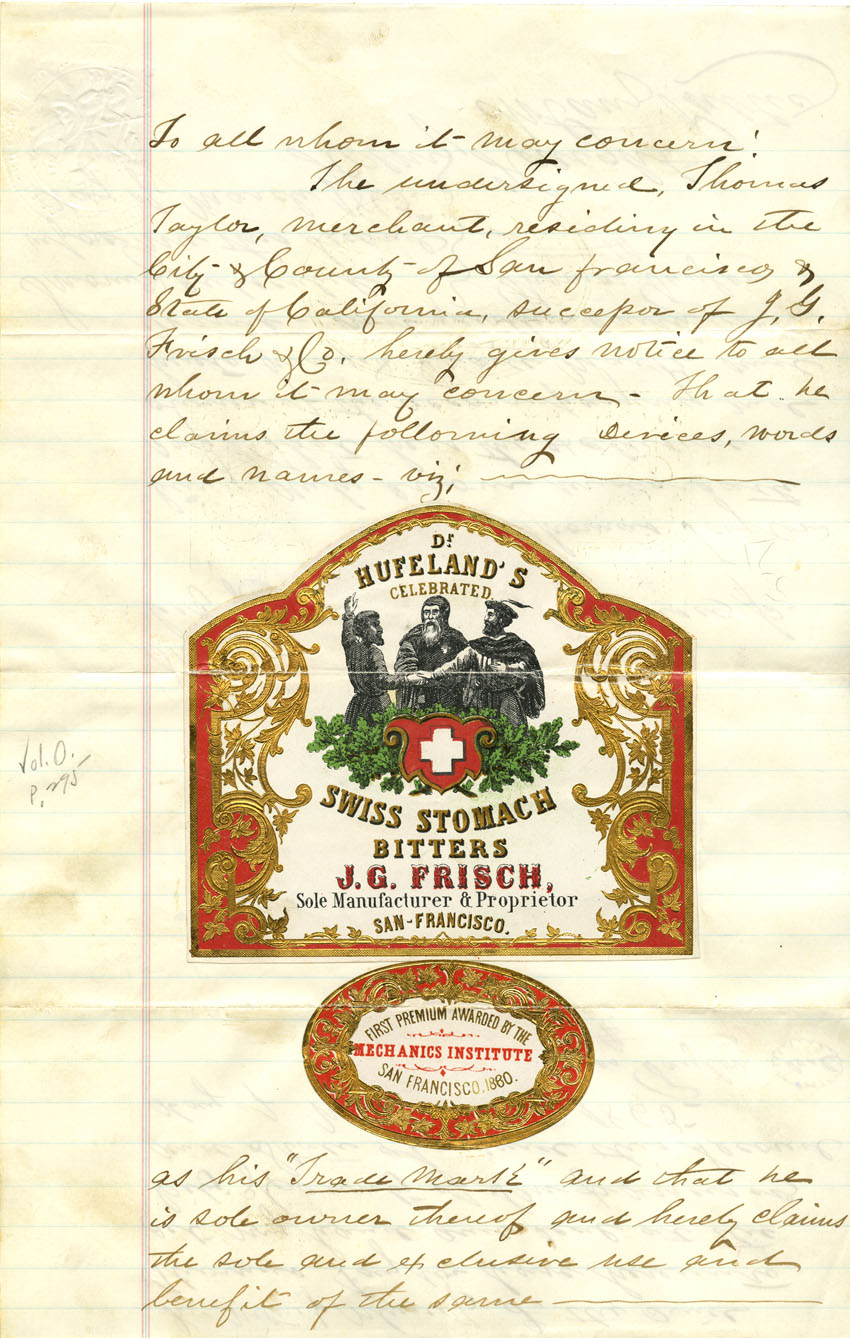 To all whom it may concern!
The undersigned, Thomas
Taylor, merchant, residing in the
City & County of San Francisco, &
State of California, successor of J. G.
Frisch & Co. hereby gives notice to all
whom it may concern - that he
claims the following Devices, words
and names - viz;
Dr.
HUFELAND'S
CELEBRATED
SWISS STOMACH
BITTERS
J. G. FRISCH,
Sole Manufacturer & Proprietor
SAN-FRANCISCO.
Vol. O.
P. 295
FIRST PREMIUM AWARDED BY THE
MECHANICS INSTITUTE
SAN FRANCISCO. 1860.
as his "Trade Mark" and that he
is sole owner thereof and hereby claims
the sole and exclusive use and
benefit of the same